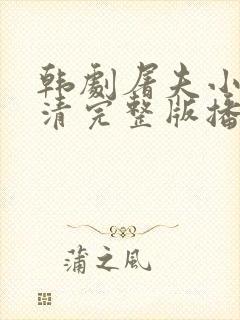 韩劇屠夫小
清完整版播
蒲之風